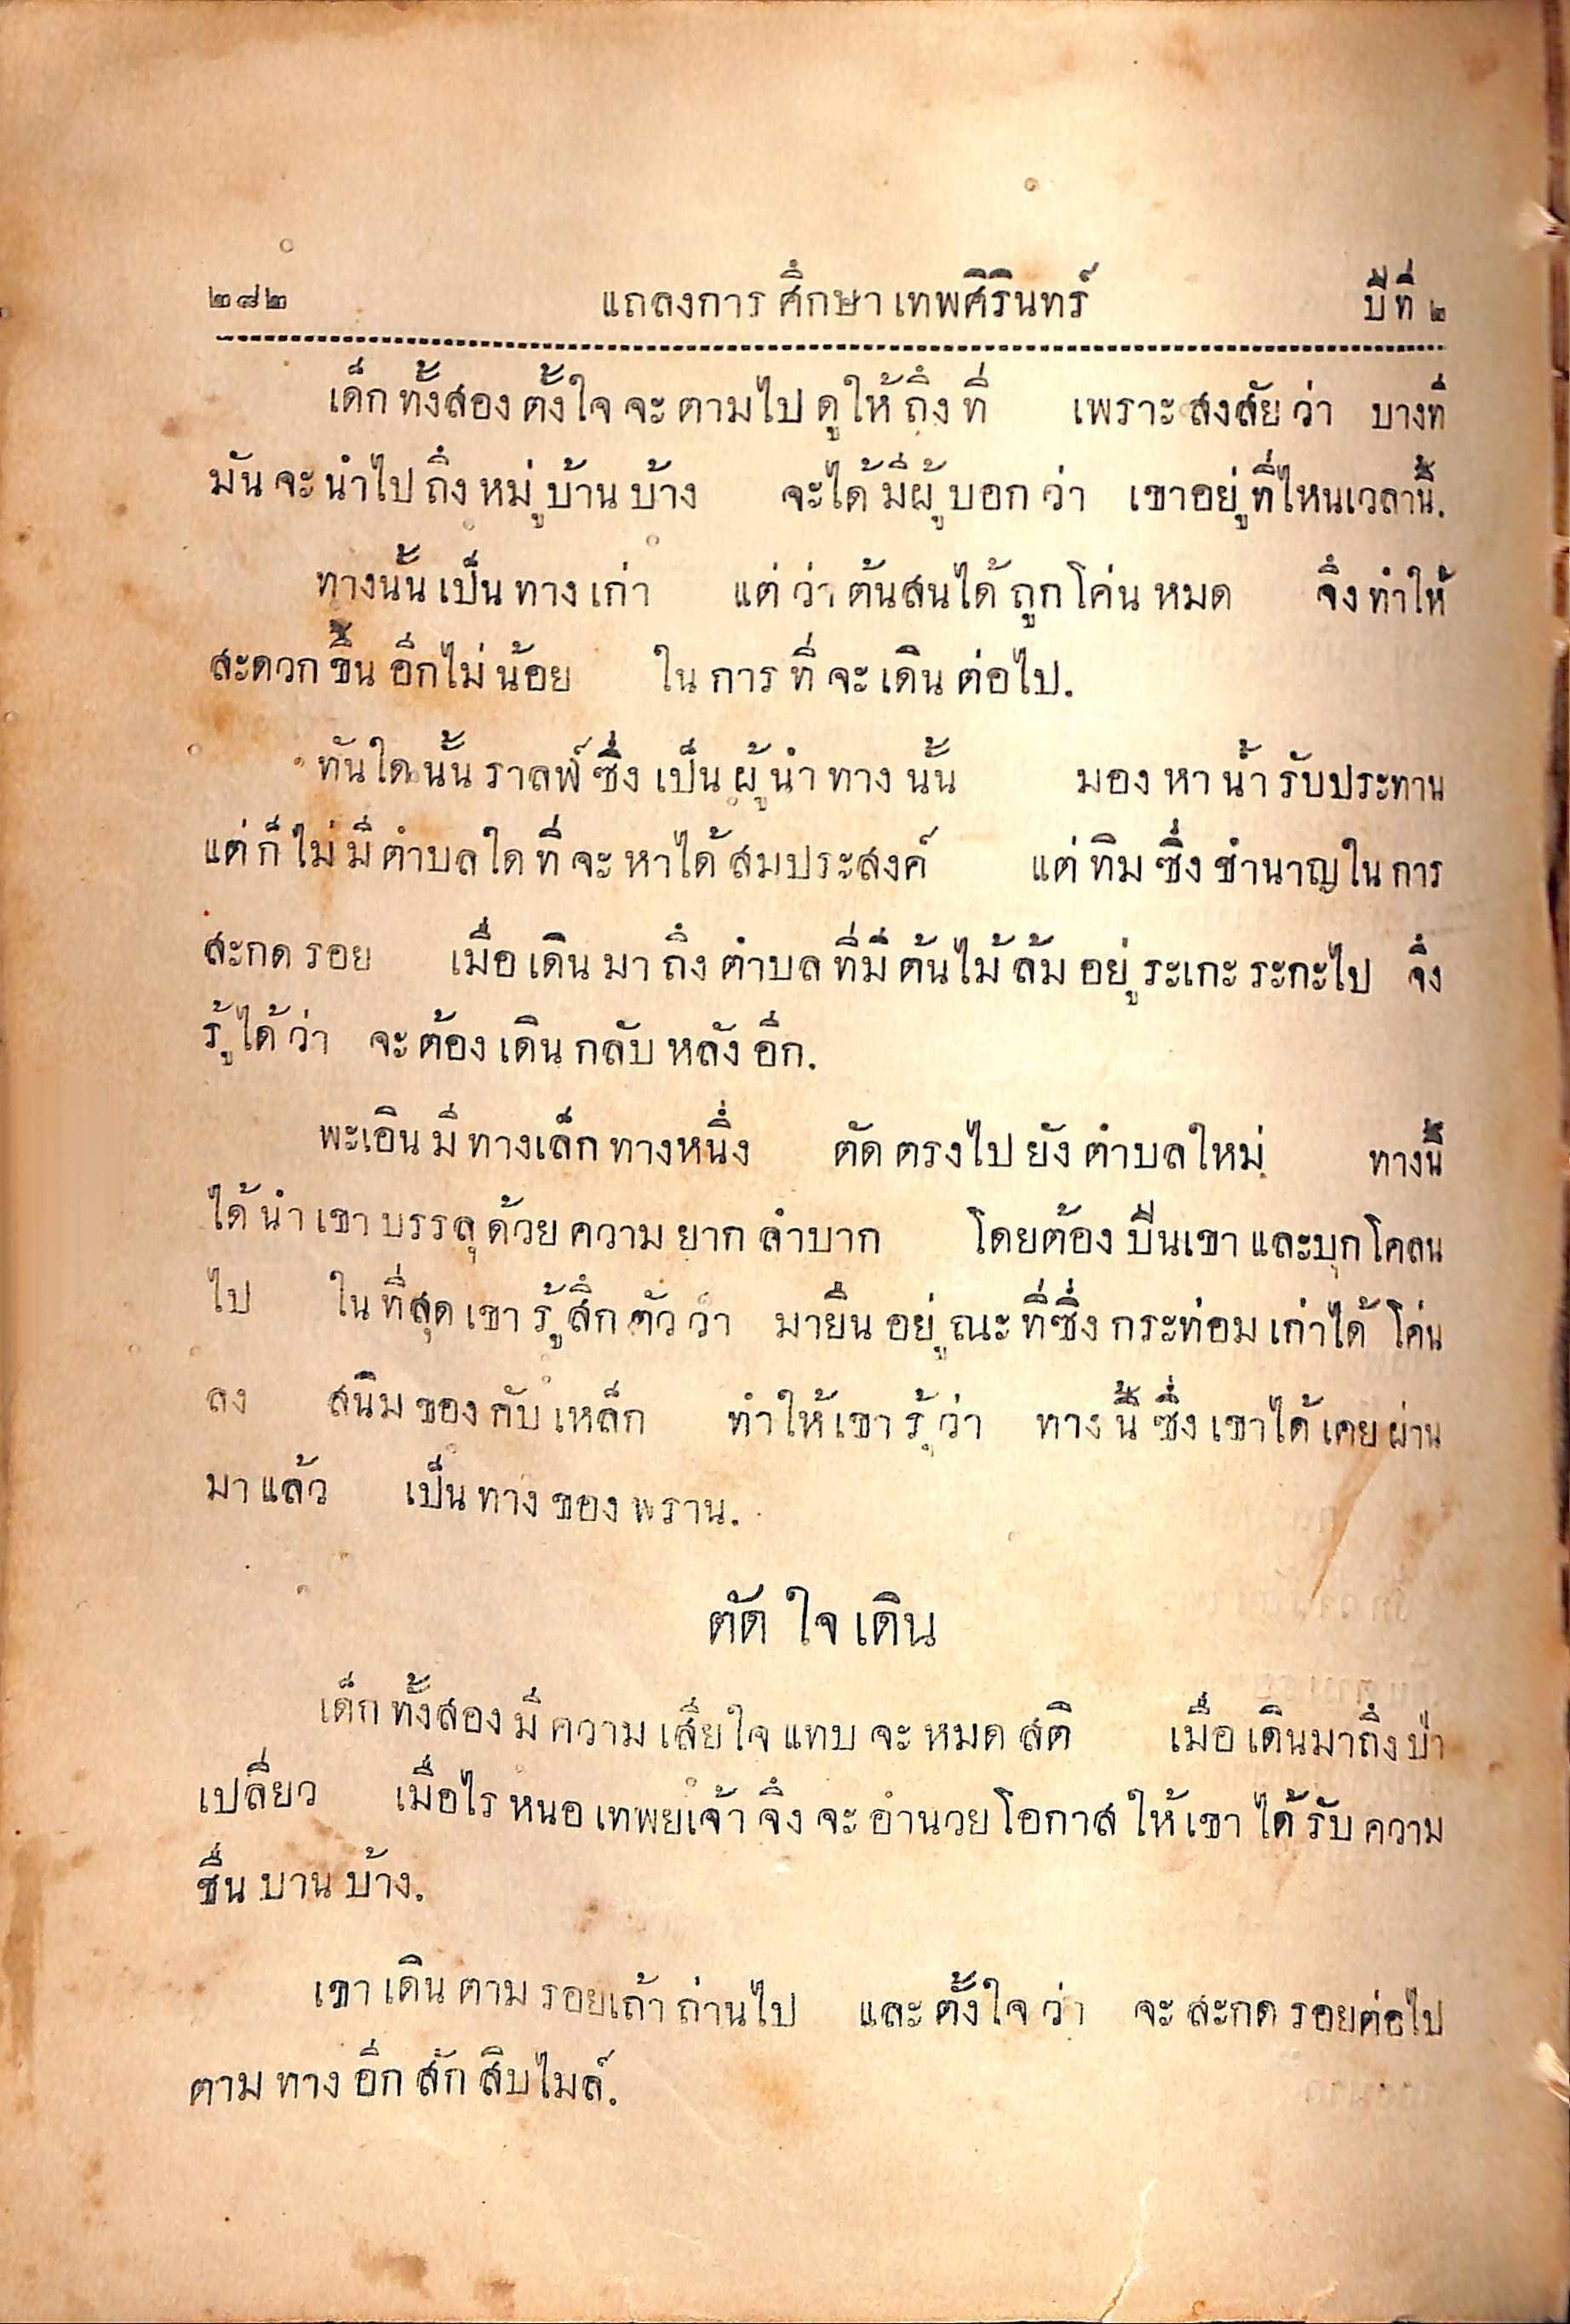 ๒๘๒ แถลงการศึกษาเทพศิรินทร์ ปีที่ ๒
เด็กทั้งสองตั้งใจจะตามไปดูให้ถึงที่ เพราะสงสัยว่า บางที
มันจะนำไปถึงหมู่บ้านบ้าง จะได้มีผู้บอกว่า เขาอยู่ที่ไหนเวลานี้.
ทางนั้นเป็นทางเก่า แต่ว่าต้นสนได้ถูกโค่นหมด จึงทำให้
สะดวกขึ้นอีกไม่น้อย ในการที่จะเดินต่อไป.
ทันใดนั้นราลฟ์ซึ่งเป็นผู้นำทางนั้น มองหาน้ำรับประทาน
แต่ก็ไม่มีตำบลใดที่จะหาได้สมประสงค์ แต่ทิมซึ่งชำนาญในการ
สะกดรอย เมื่อเดินมาถึงตำบลที่มีต้นไม้ล้มอยู่ระเกะระกะไป จึง
รู้ได้ว่า จะต้องเดินกลับหลังอีก.
พะเอินมีทางเล็กทางหนึ่ง ตัดตรงไปยังตำบลใหม่ ทางนี้
ได้นำเขาบรรลุด้วยความยากลำบาก โดยต้องปีนเขาและบุกโคลน
ไป ในที่สุดเขารู้สึกตัวว่า มายืนอยู่ณะที่ซึ่งกระท่อมเก่าได้โค่น
ลง สนิมของกับเหล็ก ทำให้เขารู้ว่า ทางนี้ซึ่งเขาได้เคยผ่าน
มาแล้ว เป็นทางของพราน.
ตัดใจเดิน
เด็กทั้งสองมีความเสียใจแทบจะหมดสติ เมื่อเดินมาถึงป่า
เปลี่ยว เมื่อไรหนอเทพยเจ้าจึงจะอำนวยโอกาสให้เขาได้รับความ
ชื่นบานบ้าง.
เขาเดินตามรอยเถ้าถ่านไป และตั้งใจว่า จะสะกดรอยต่อไป
ตามทางอีกสักสิบไมล์.